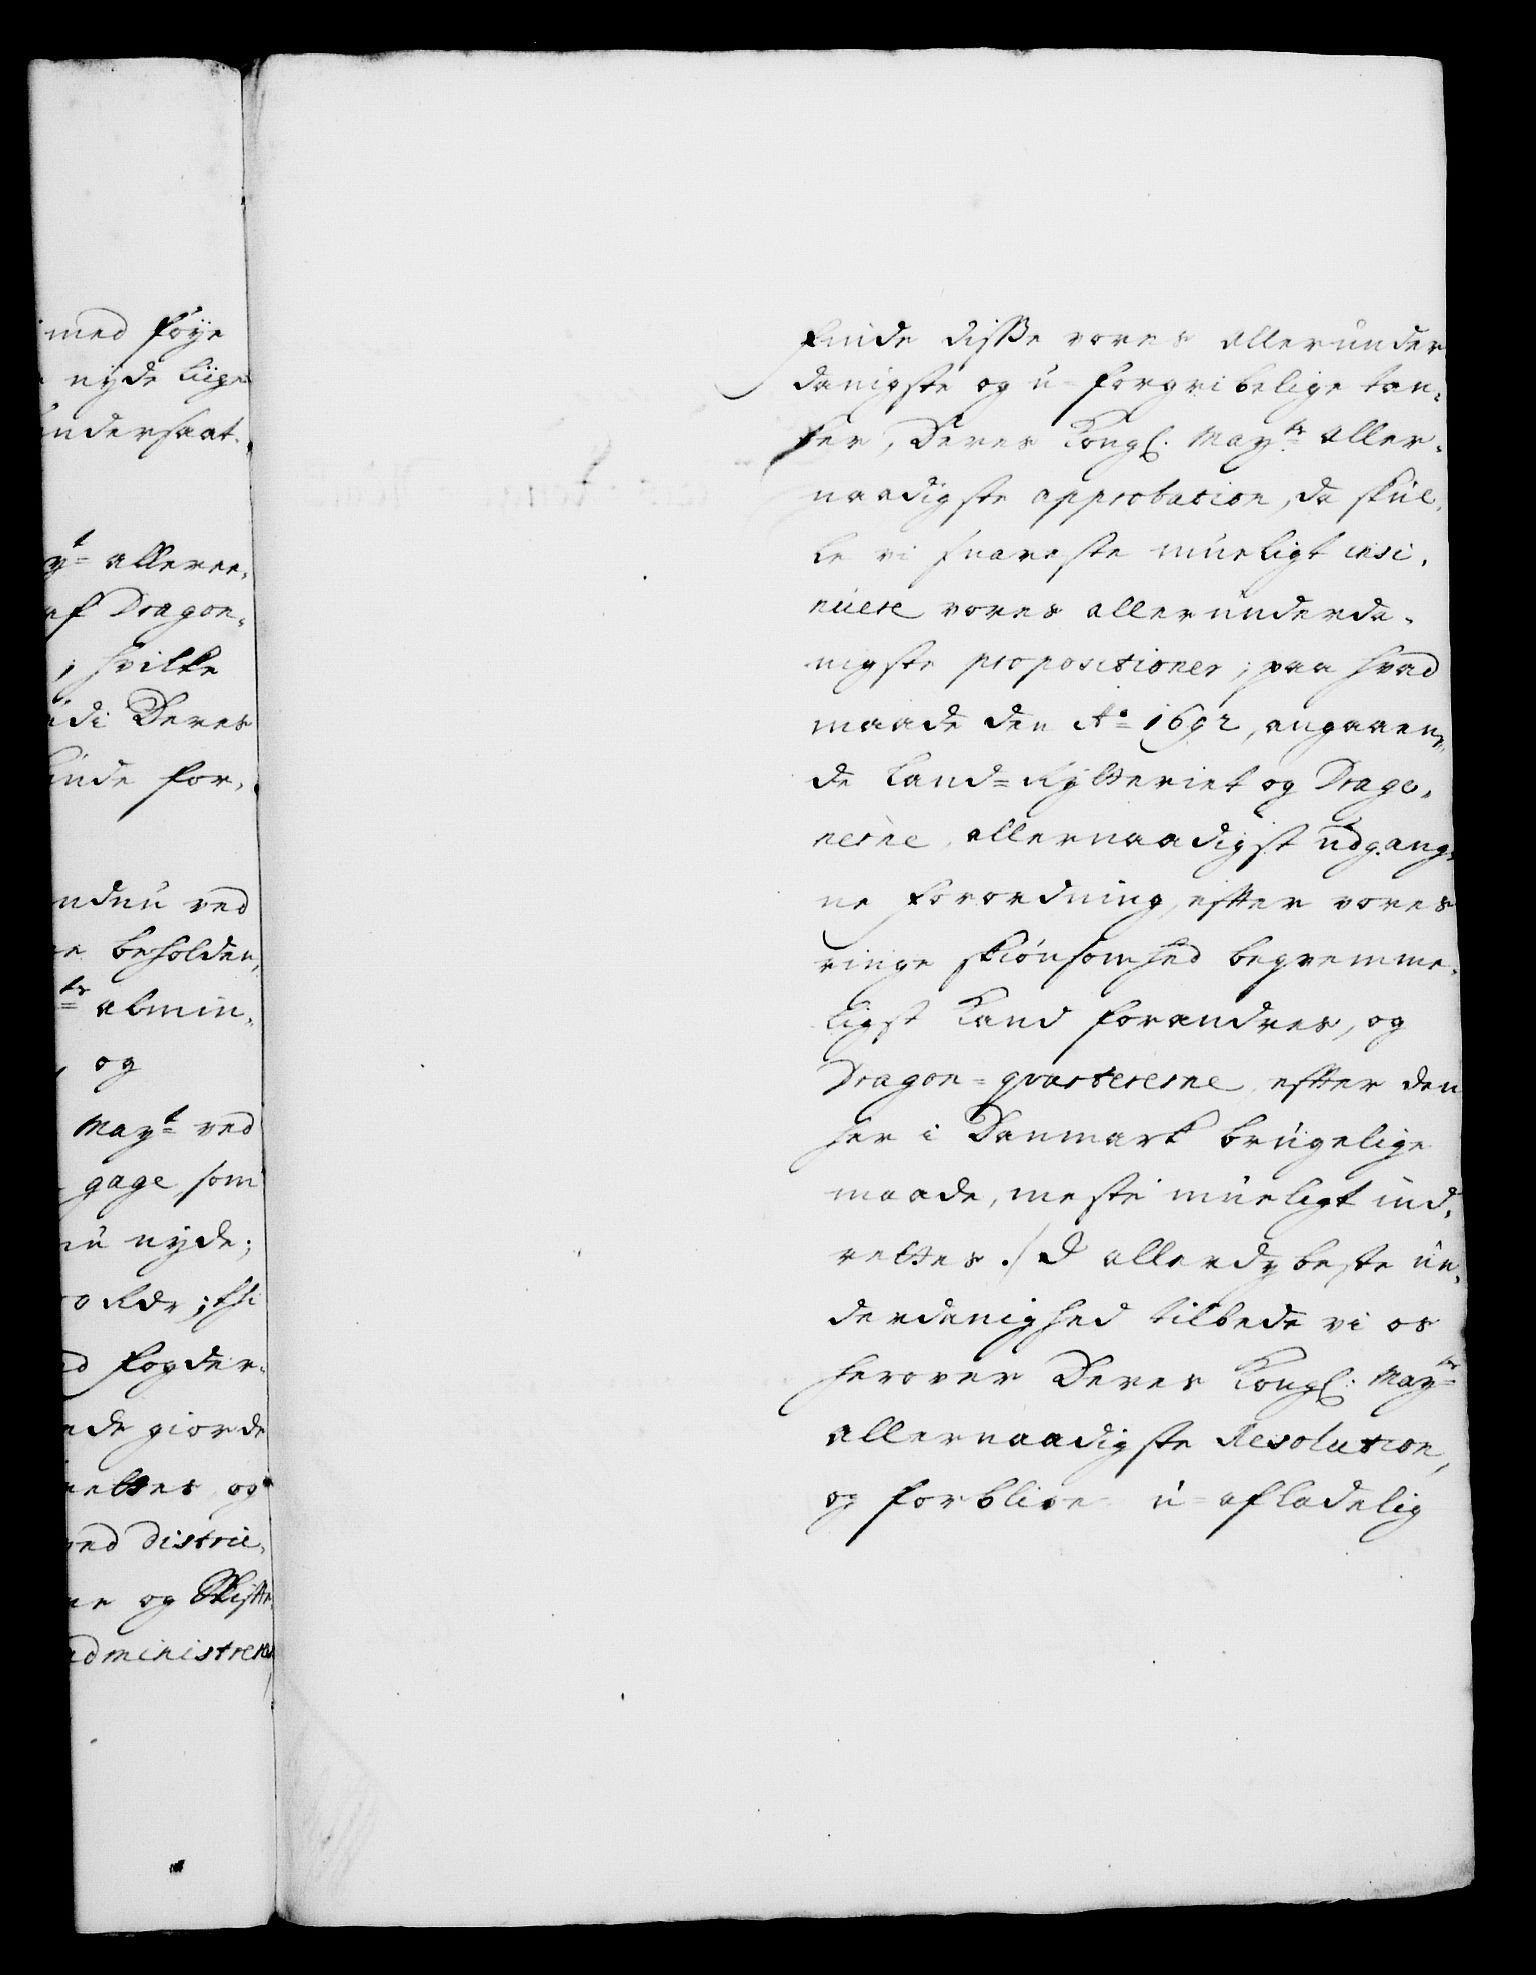 med føye
nyde liige
undersaat-
yt= alleree-
af Dragon-
, hvilke
idi Deres
unde for-
endnu ved
beholden,
ts= almin-
, og
Mayt= ved
gage som
nu nyde;
0 Rdr; thi
Fogder-
giorde
rettes og
ved distri-
ne og Skifte-
administrere
Finde disse vores allerunder
danigste og u-forgribelige tan-
ker, Deres Kongl. Mayts= aller-
naadigste approbation, da skul-
le vi snareste mueligt insi-
nuere vores allerunderda-
nigste propositioner, paa hvad
maade den Ao= 1692, angaaen-
de Land=Rytteriet og Drago-
nerne, allernaadigst udgang-
ne Forordning, efter vores
ringe skiønsomhed beqvemme-
ligst kand forandres, og
Dragon=qvartererne efter den
her i Danmark brugelige
maade, meste mueligt ind-
rettes ./ I allerdybeste un-
derdanighed tilbede vi os
herover Deres Kongl. Mayts=
allernaadigste Resolution,
og forblive u=afladelig